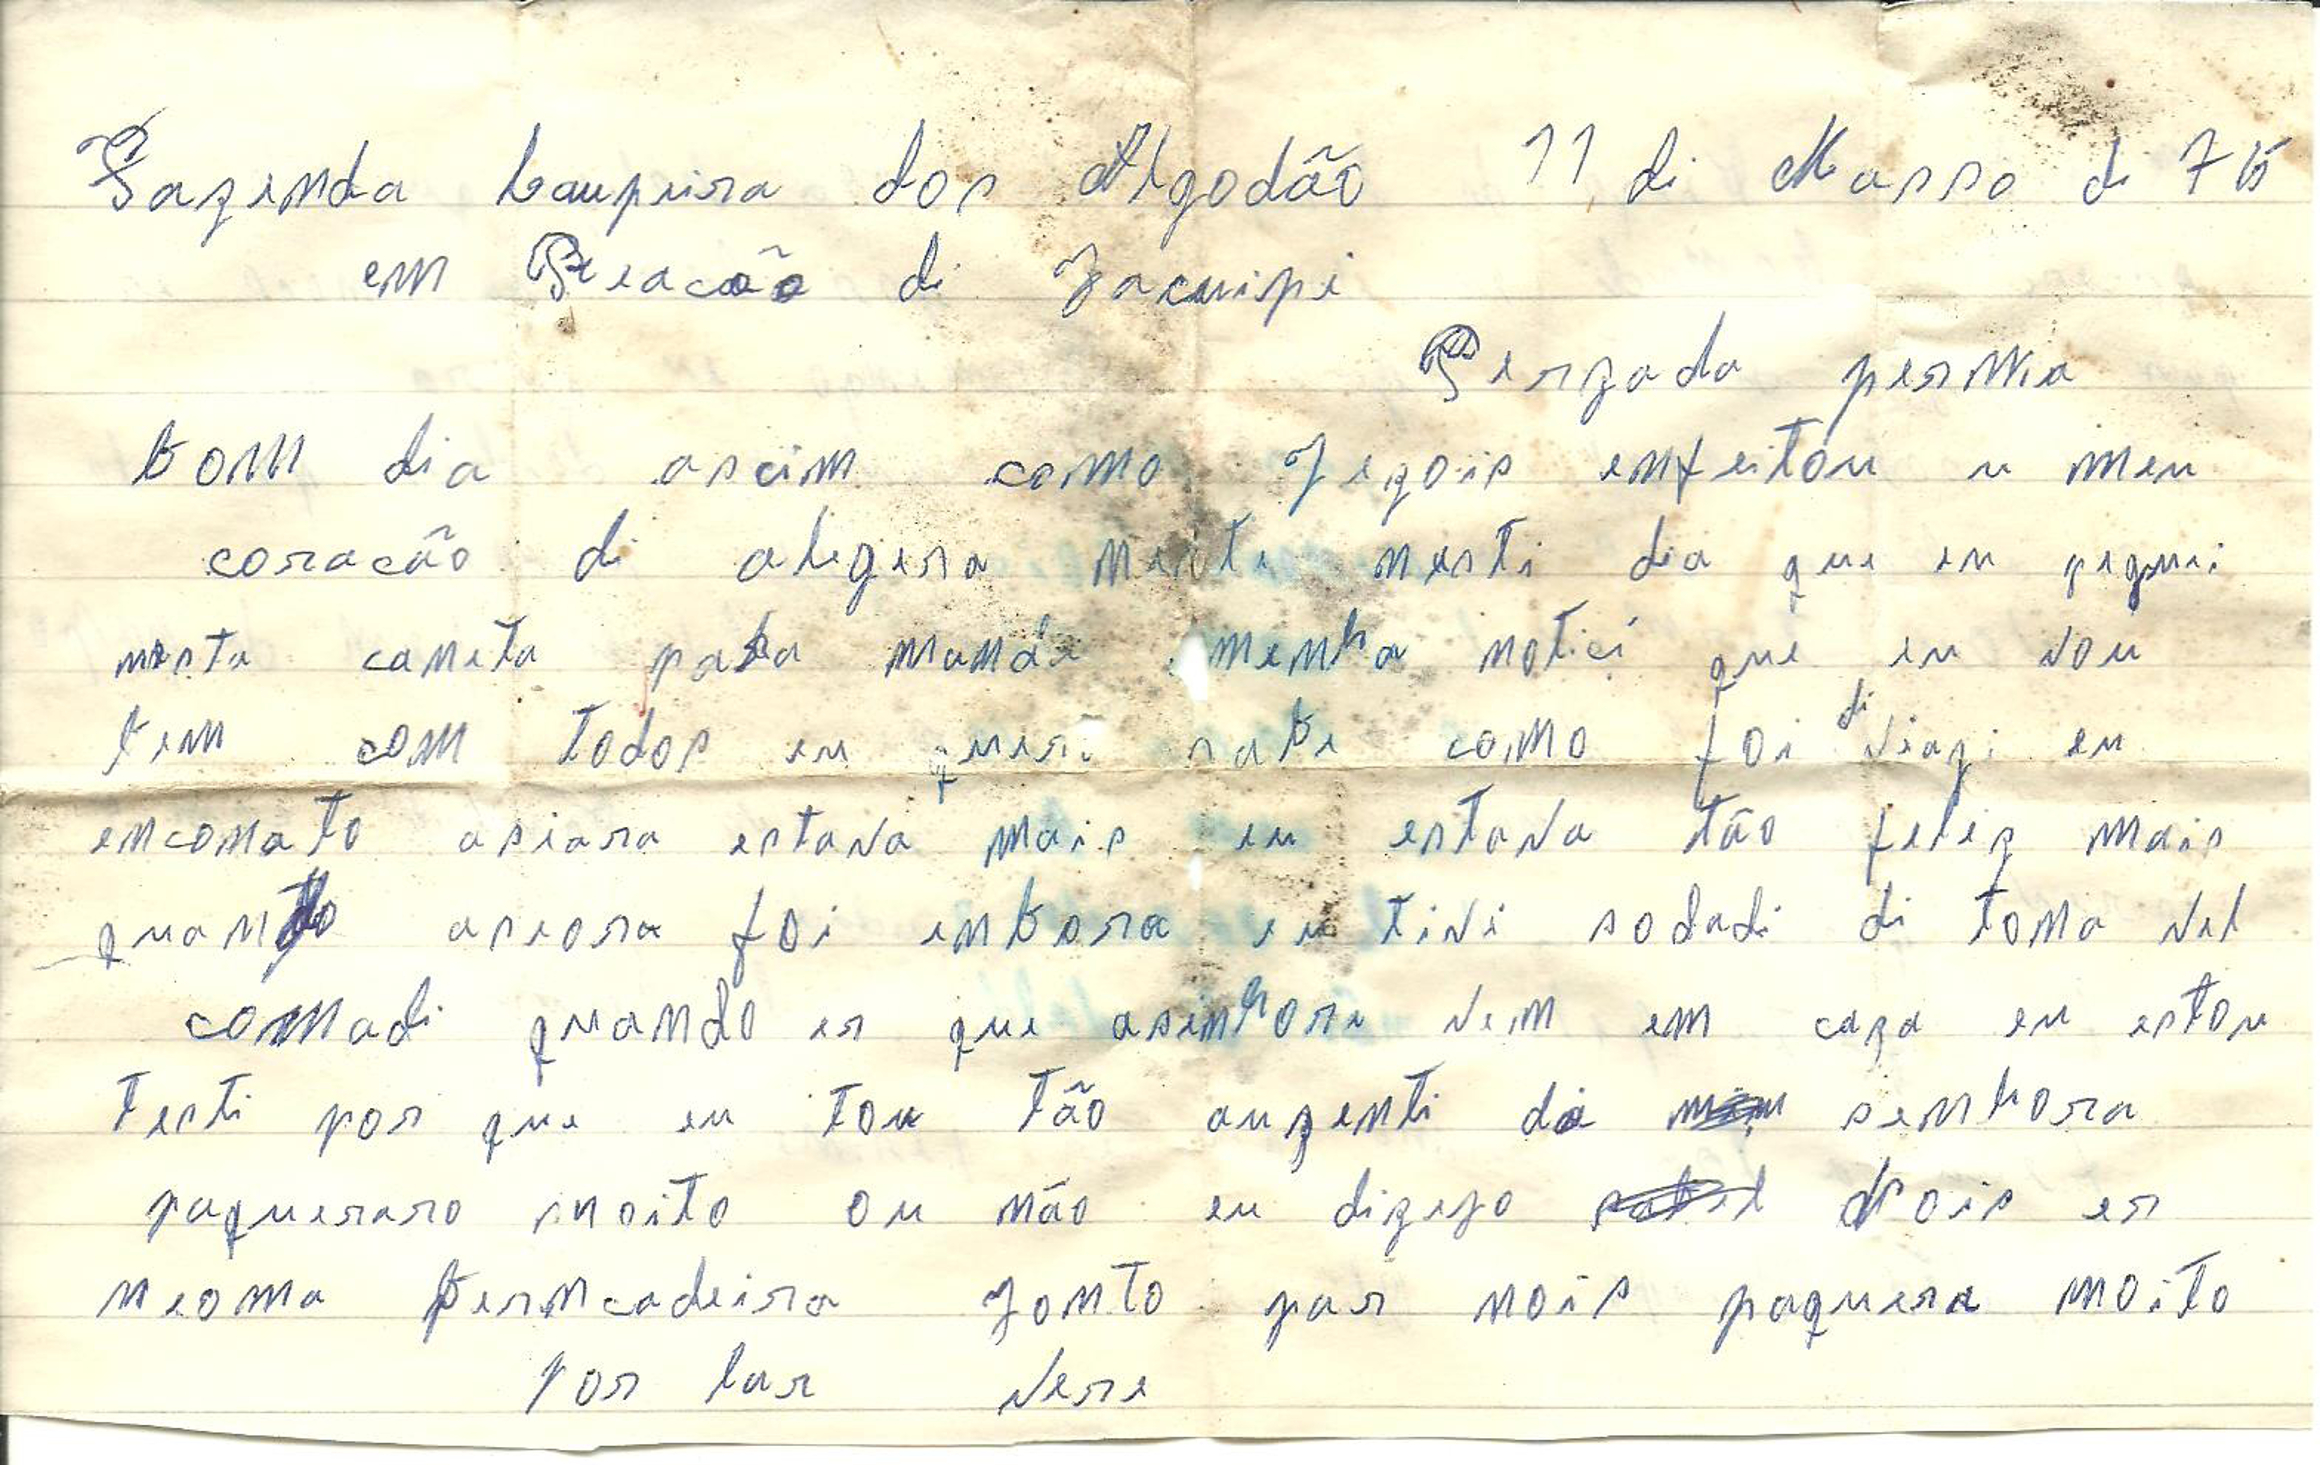 Fazenda Caupeira dos Algodão 11 di Marso di 76
em Reacão di Jacuipi
Perzada perma
bom dia ascim como Jezois enfeitou u meu
coracão di alegera menti nesti dia que eu peguei
nesta caneta para manda menha notici que eu vou
bem com todos eu queri sabe como foi di viazi eu
enconato asiara estava mais eu estava tão felez mais
quando aseora foi enbora eu tive sodadi di toma vel
comadi quando er que asinhora vem em caza eu estou
testi por que eu tou tão auzenti da senhora
paqueraro moito ou não eu dizejo Nois er
neoma bermcadeira Jonto par nois paquera moito
por lar vere